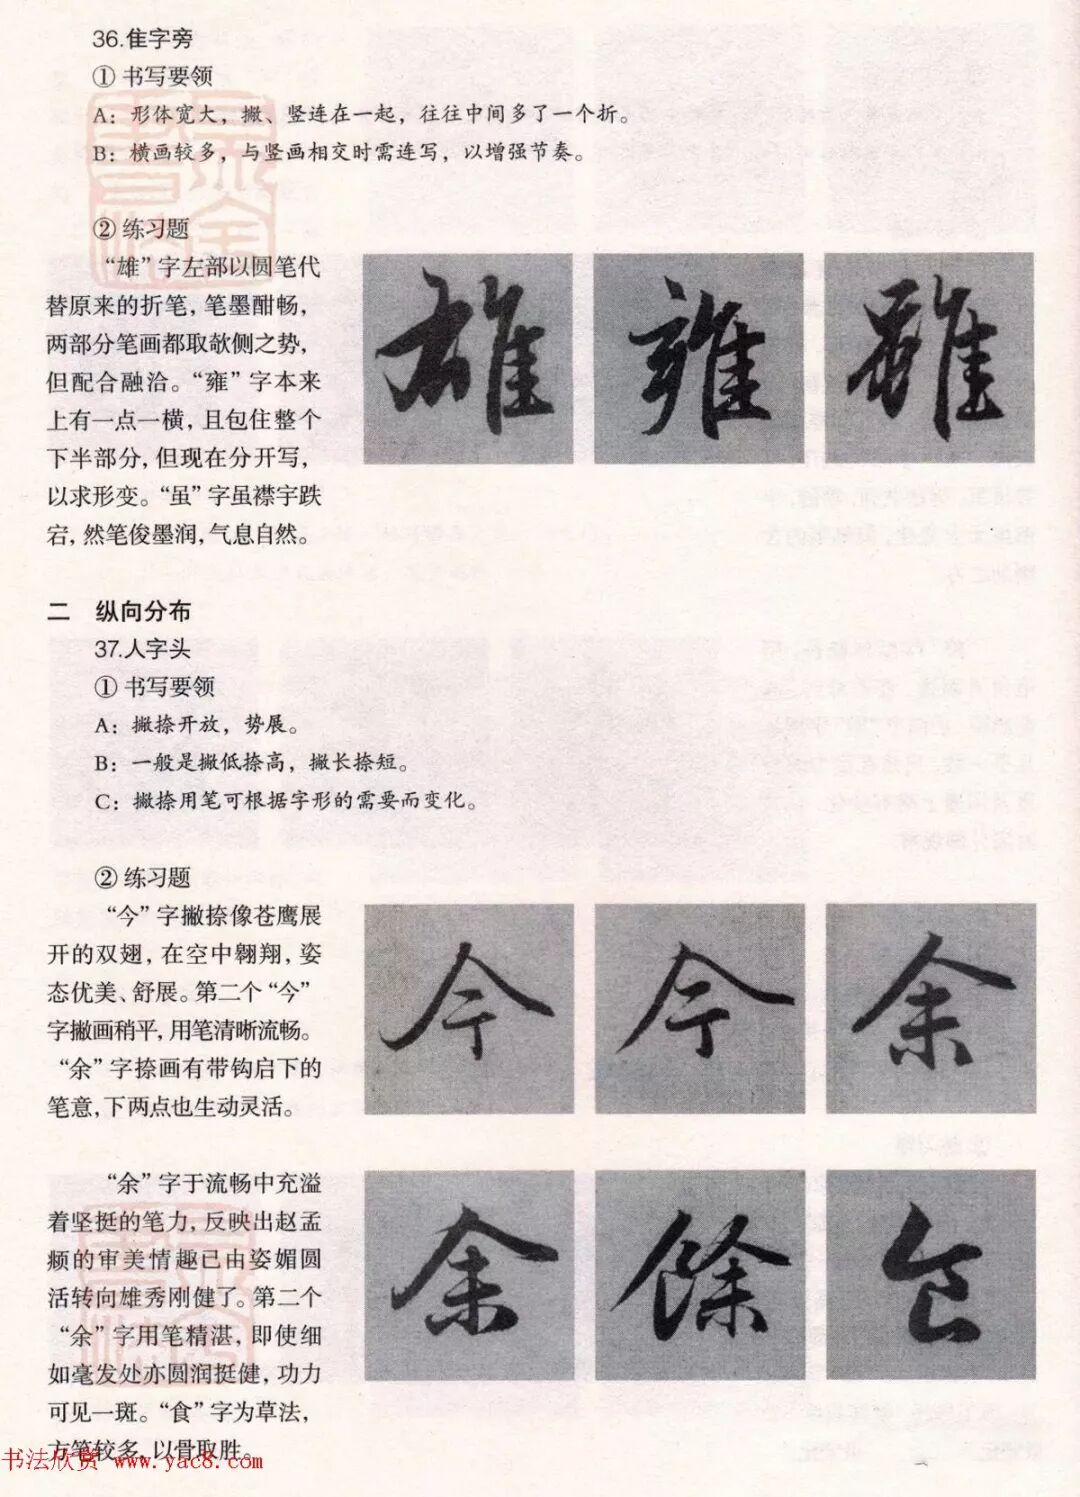 36.隹字旁
① 书写要领
A：形体宽大，撇、竖连在一起，往往中间多了一个折。
B：横画较多，与竖画相交时需连写，以增强节奏。
② 练习题
“雄”字左部以圆笔代
替原来的折笔，笔墨酣畅，
两部分笔画都取欹侧之势，
但配合融洽。“雍”字本来
上有一点一横，且包住整个
下半部分，但现在分开写，
以求形变。“虽”字虽襟宇跌
宕，然笔俊墨润，气息自然。
雄 雍 雖
二 纵向分布
37.人字头
① 书写要领
A：撇捺开放，势展。
B：一般是撇低捺高，撇长捺短。
C：撇捺用笔可根据字形的需要而变化。
② 练习题
“今”字撇捺像苍鹰展
开的双翅，在空中翱翔，姿
态优美、舒展。第二个“今”
字撇画稍平，用笔清晰流畅。
“余”字捺画有带钩启下的
笔意，下两点也生动灵活。
今 今 余
“余”字于流畅中充溢
着坚挺的笔力，反映出赵孟
頫的审美情趣已由姿媚圆
活转向雄秀刚健了。第二个
“余”字用笔精湛，即使细
如毫发处亦圆润挺健，功力
可见一斑。“食”字为草法，
方笔较多，以骨取胜。
余 餘 食
书法欣赏 www.yac8.com